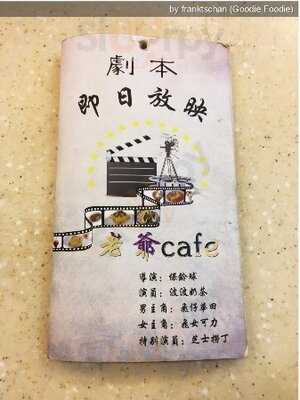 by franktschan (Goodie Foodie)
劇本
即日放映
老爺cafe
導演：保齡球
演員：波波奶茶
男主角：飛仔華田
女主角：飛女可力
特別演員：芝士撈丁